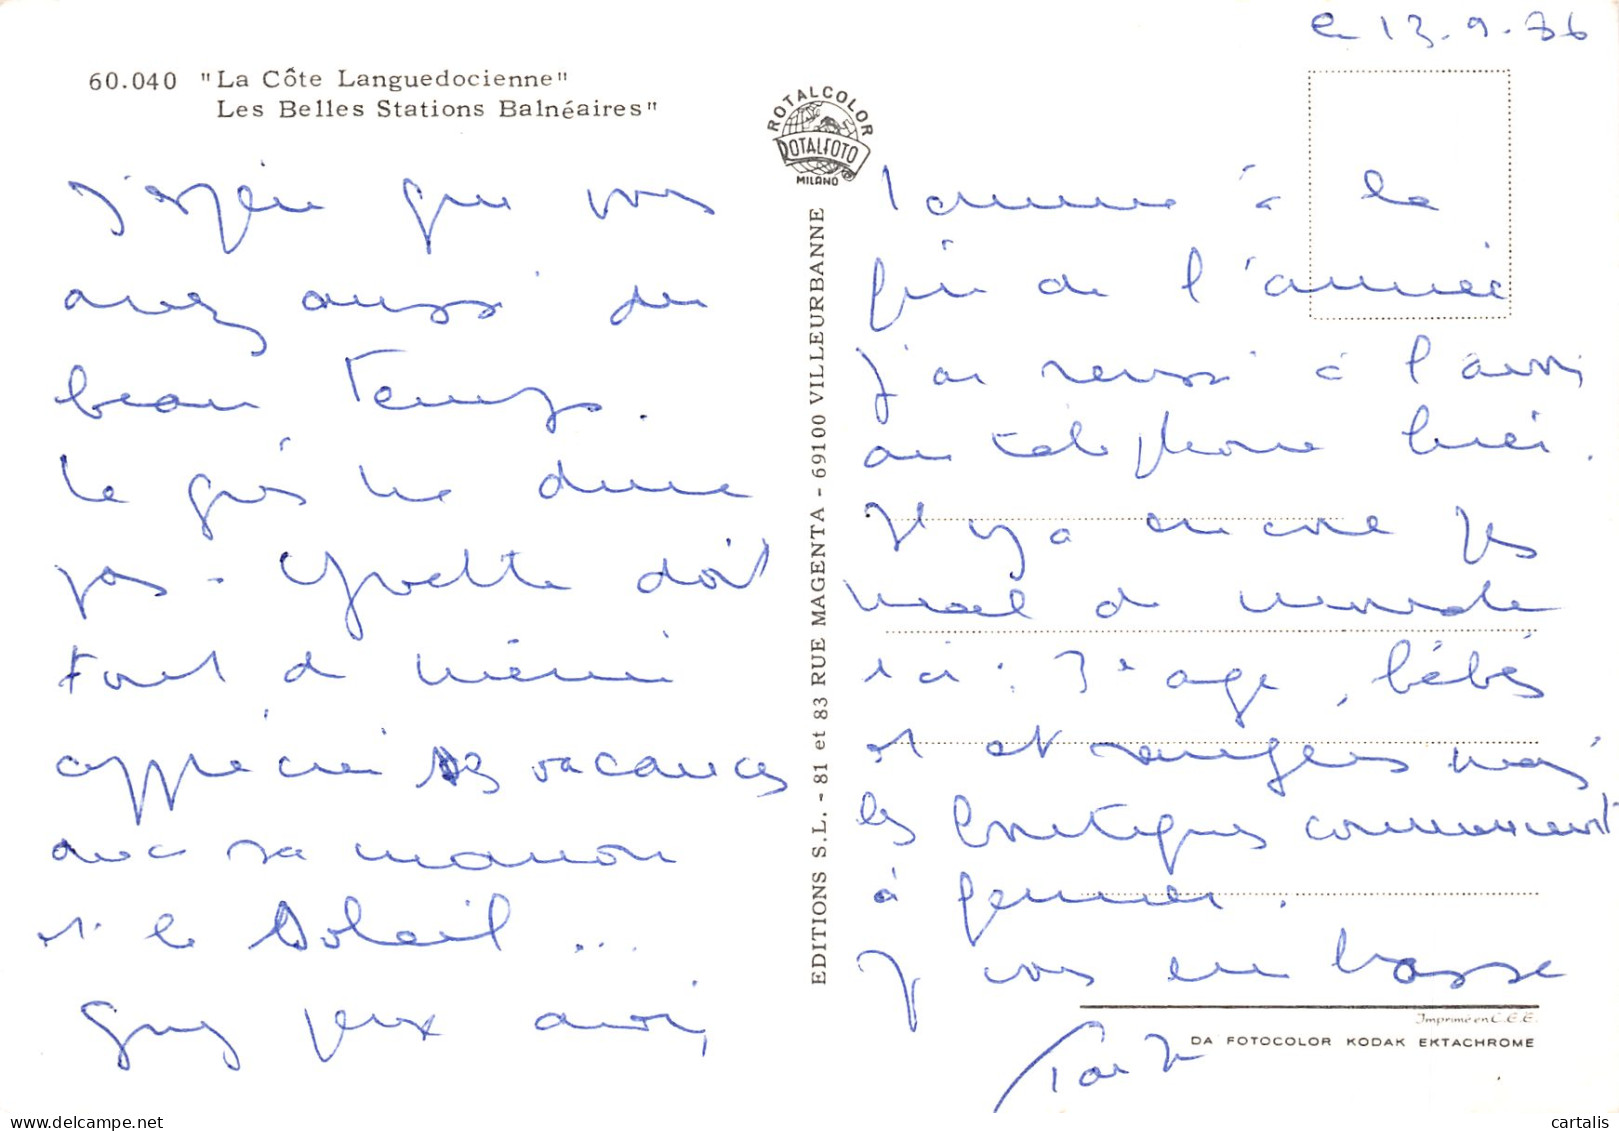 Le 13.9.86
60.040 "La Côte Languedocienne"
Les Belles Stations Balnéaires"
ROTALCOLOR
ROTALFOTO
MILANO
EDITIONS S.L. - 81 et 83 RUE MAGENTA - 69100 VILLEURBANNE
J'espère que vous
avez aussi du
beau temps.
Le gris ne dure
pas - Yvette doit
tout de même
apprécier ses vacances
avec sa maman
et le soleil ...
Guy peut avoir
à la
fin de l'année
J'ai réussi à l'avoir
au téléphone hier.
Il y a encore pas
mal de monde
ici : 3e age, bébés
et étrangers mais
les boutiques commencent
à fermer.
Je vous embrasse
Imprimé en C.E.E.
DA FOTOCOLOR KODAK EKTACHROME
cartalis
www.delcampe.net